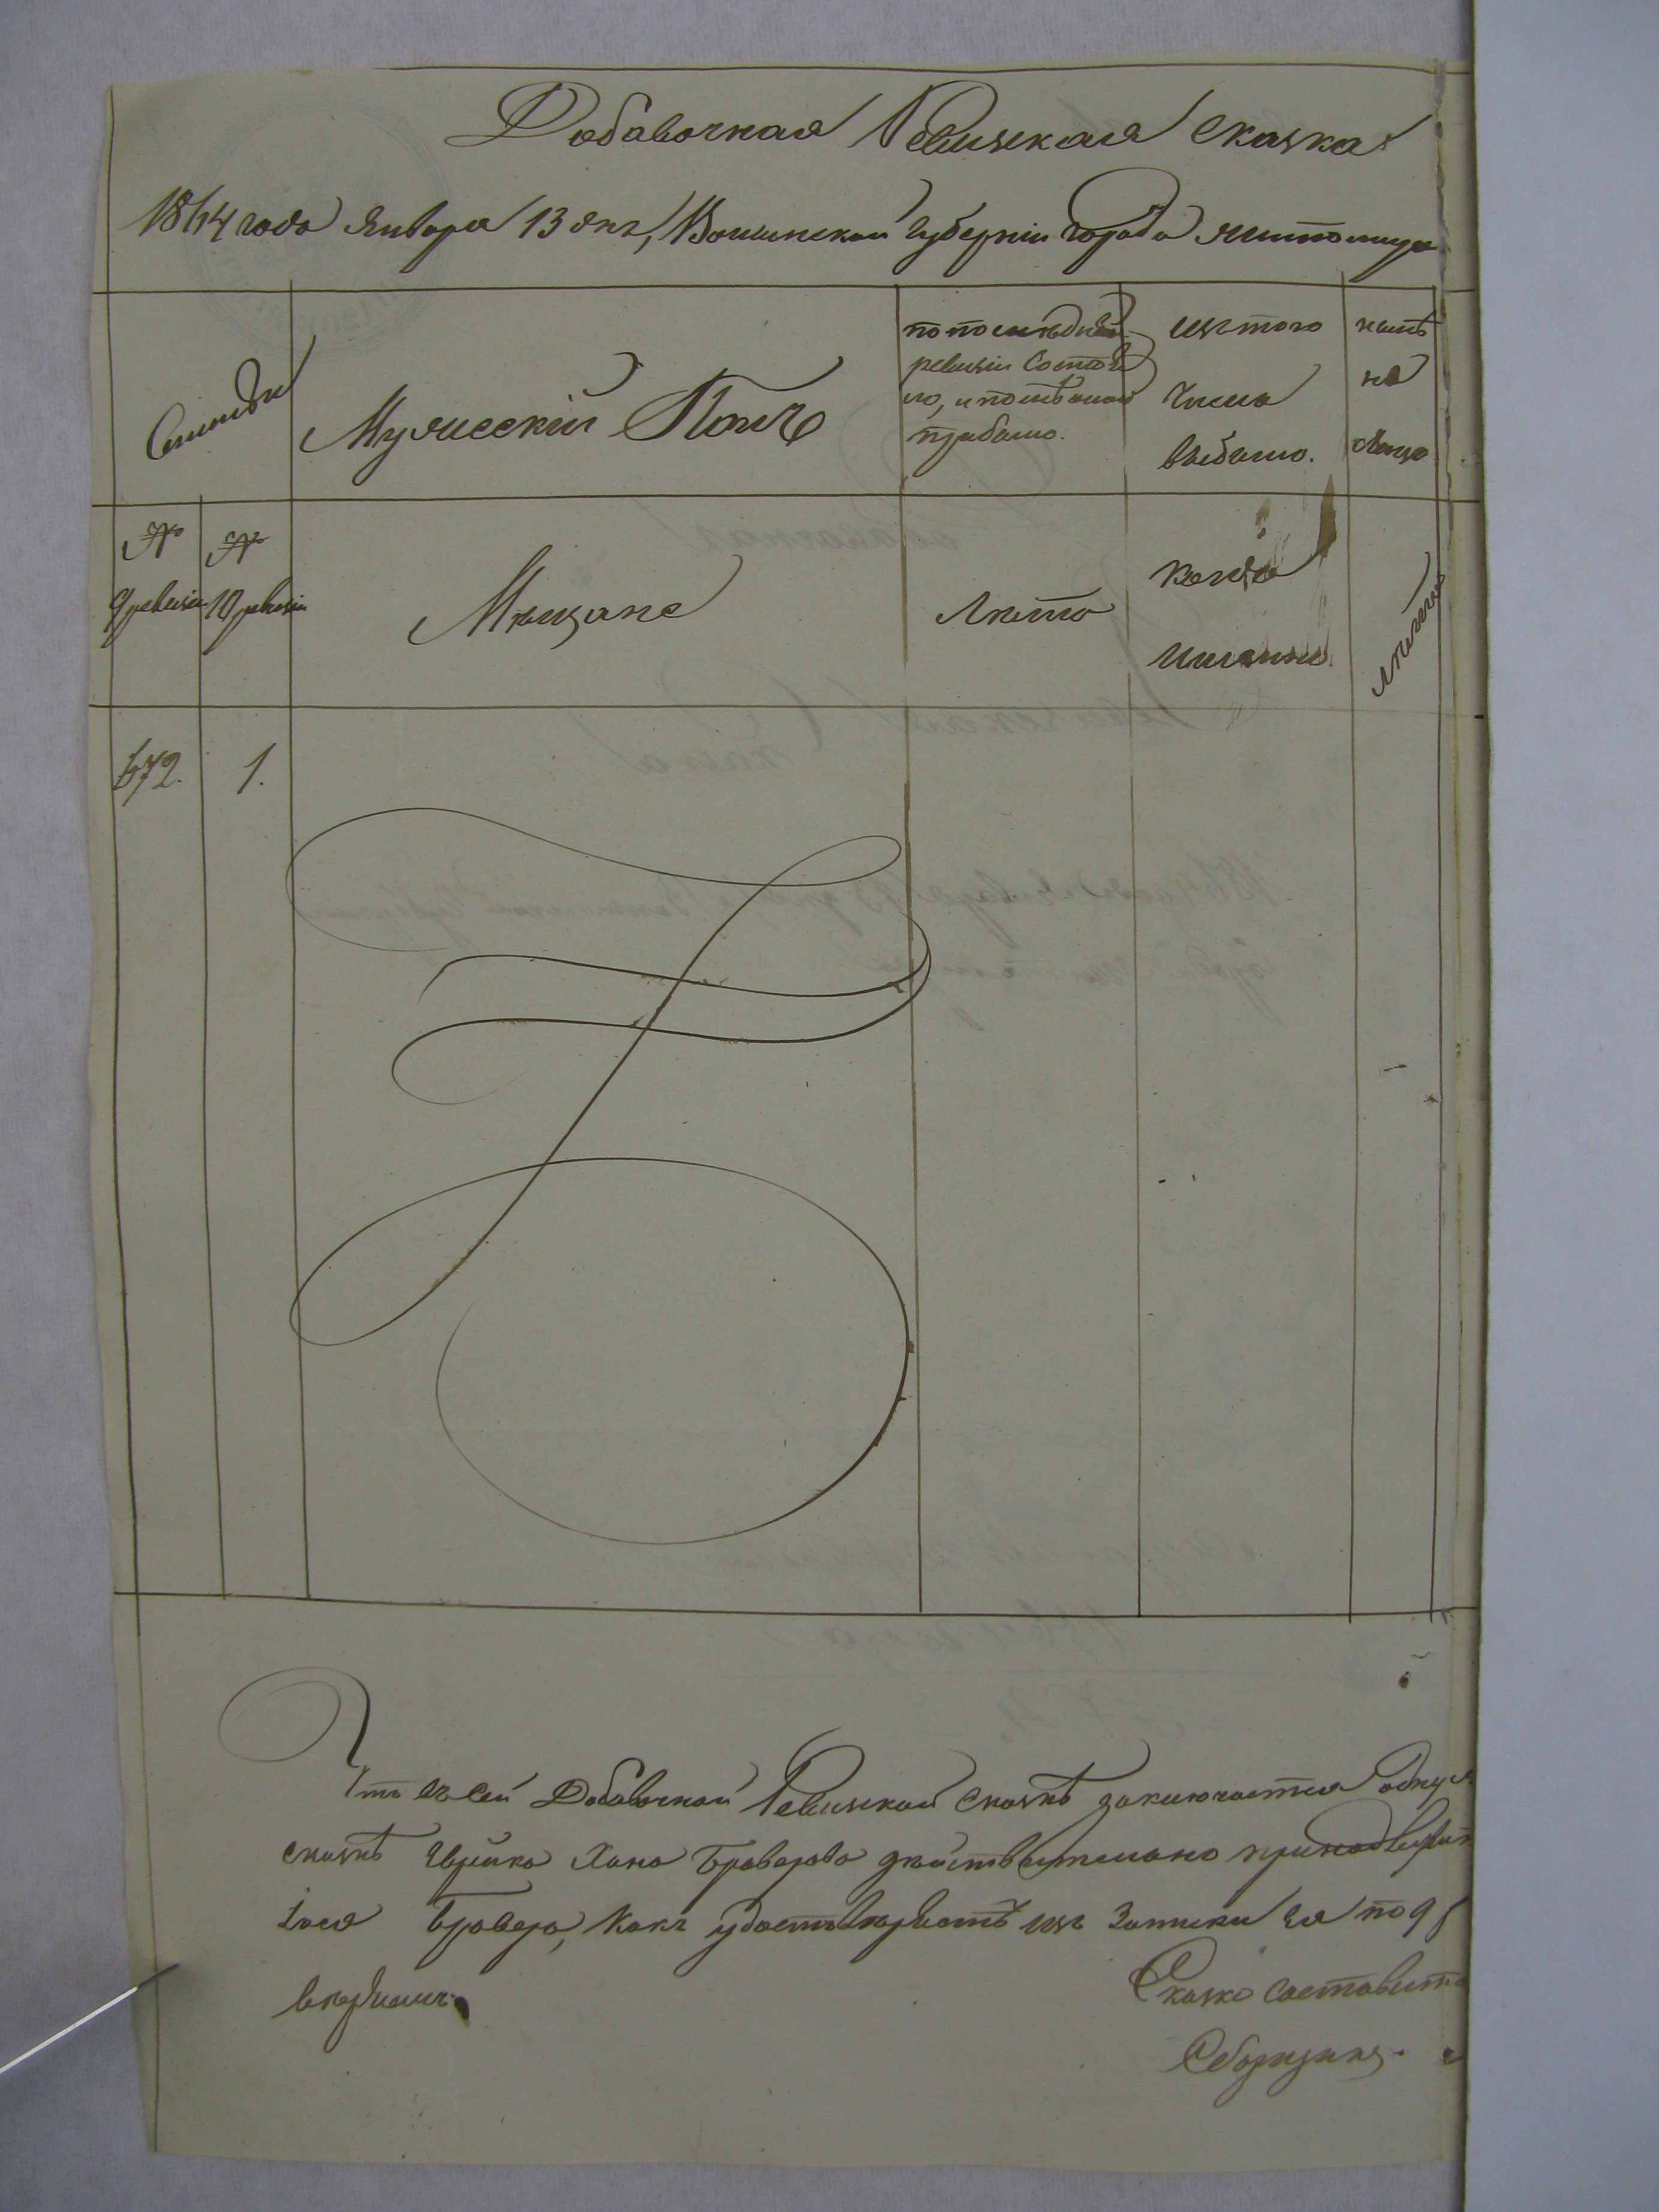 Добавочная Ревизская сказка
1864 года Января 13 дня, Волынской губерніи города Житомира
Семьи
Мужескій Полъ
по последней
ревизіи состоя
ло, и после оной
прибыло.
изъ того
числа
выбыло.
нынѣ
на
лицо
№
9 ревизіи
№
10 ревизіи
Мѣщане
Лѣта
Когда
именно.
Лѣта
672.
1.
Что въ сей Добавочной Ревизской сказкѣ заключается
сказкѣ Еврейка Хана Бравера дѣйствительно
Бравера, какъ изъ Записки по 9
Сказка составитъ